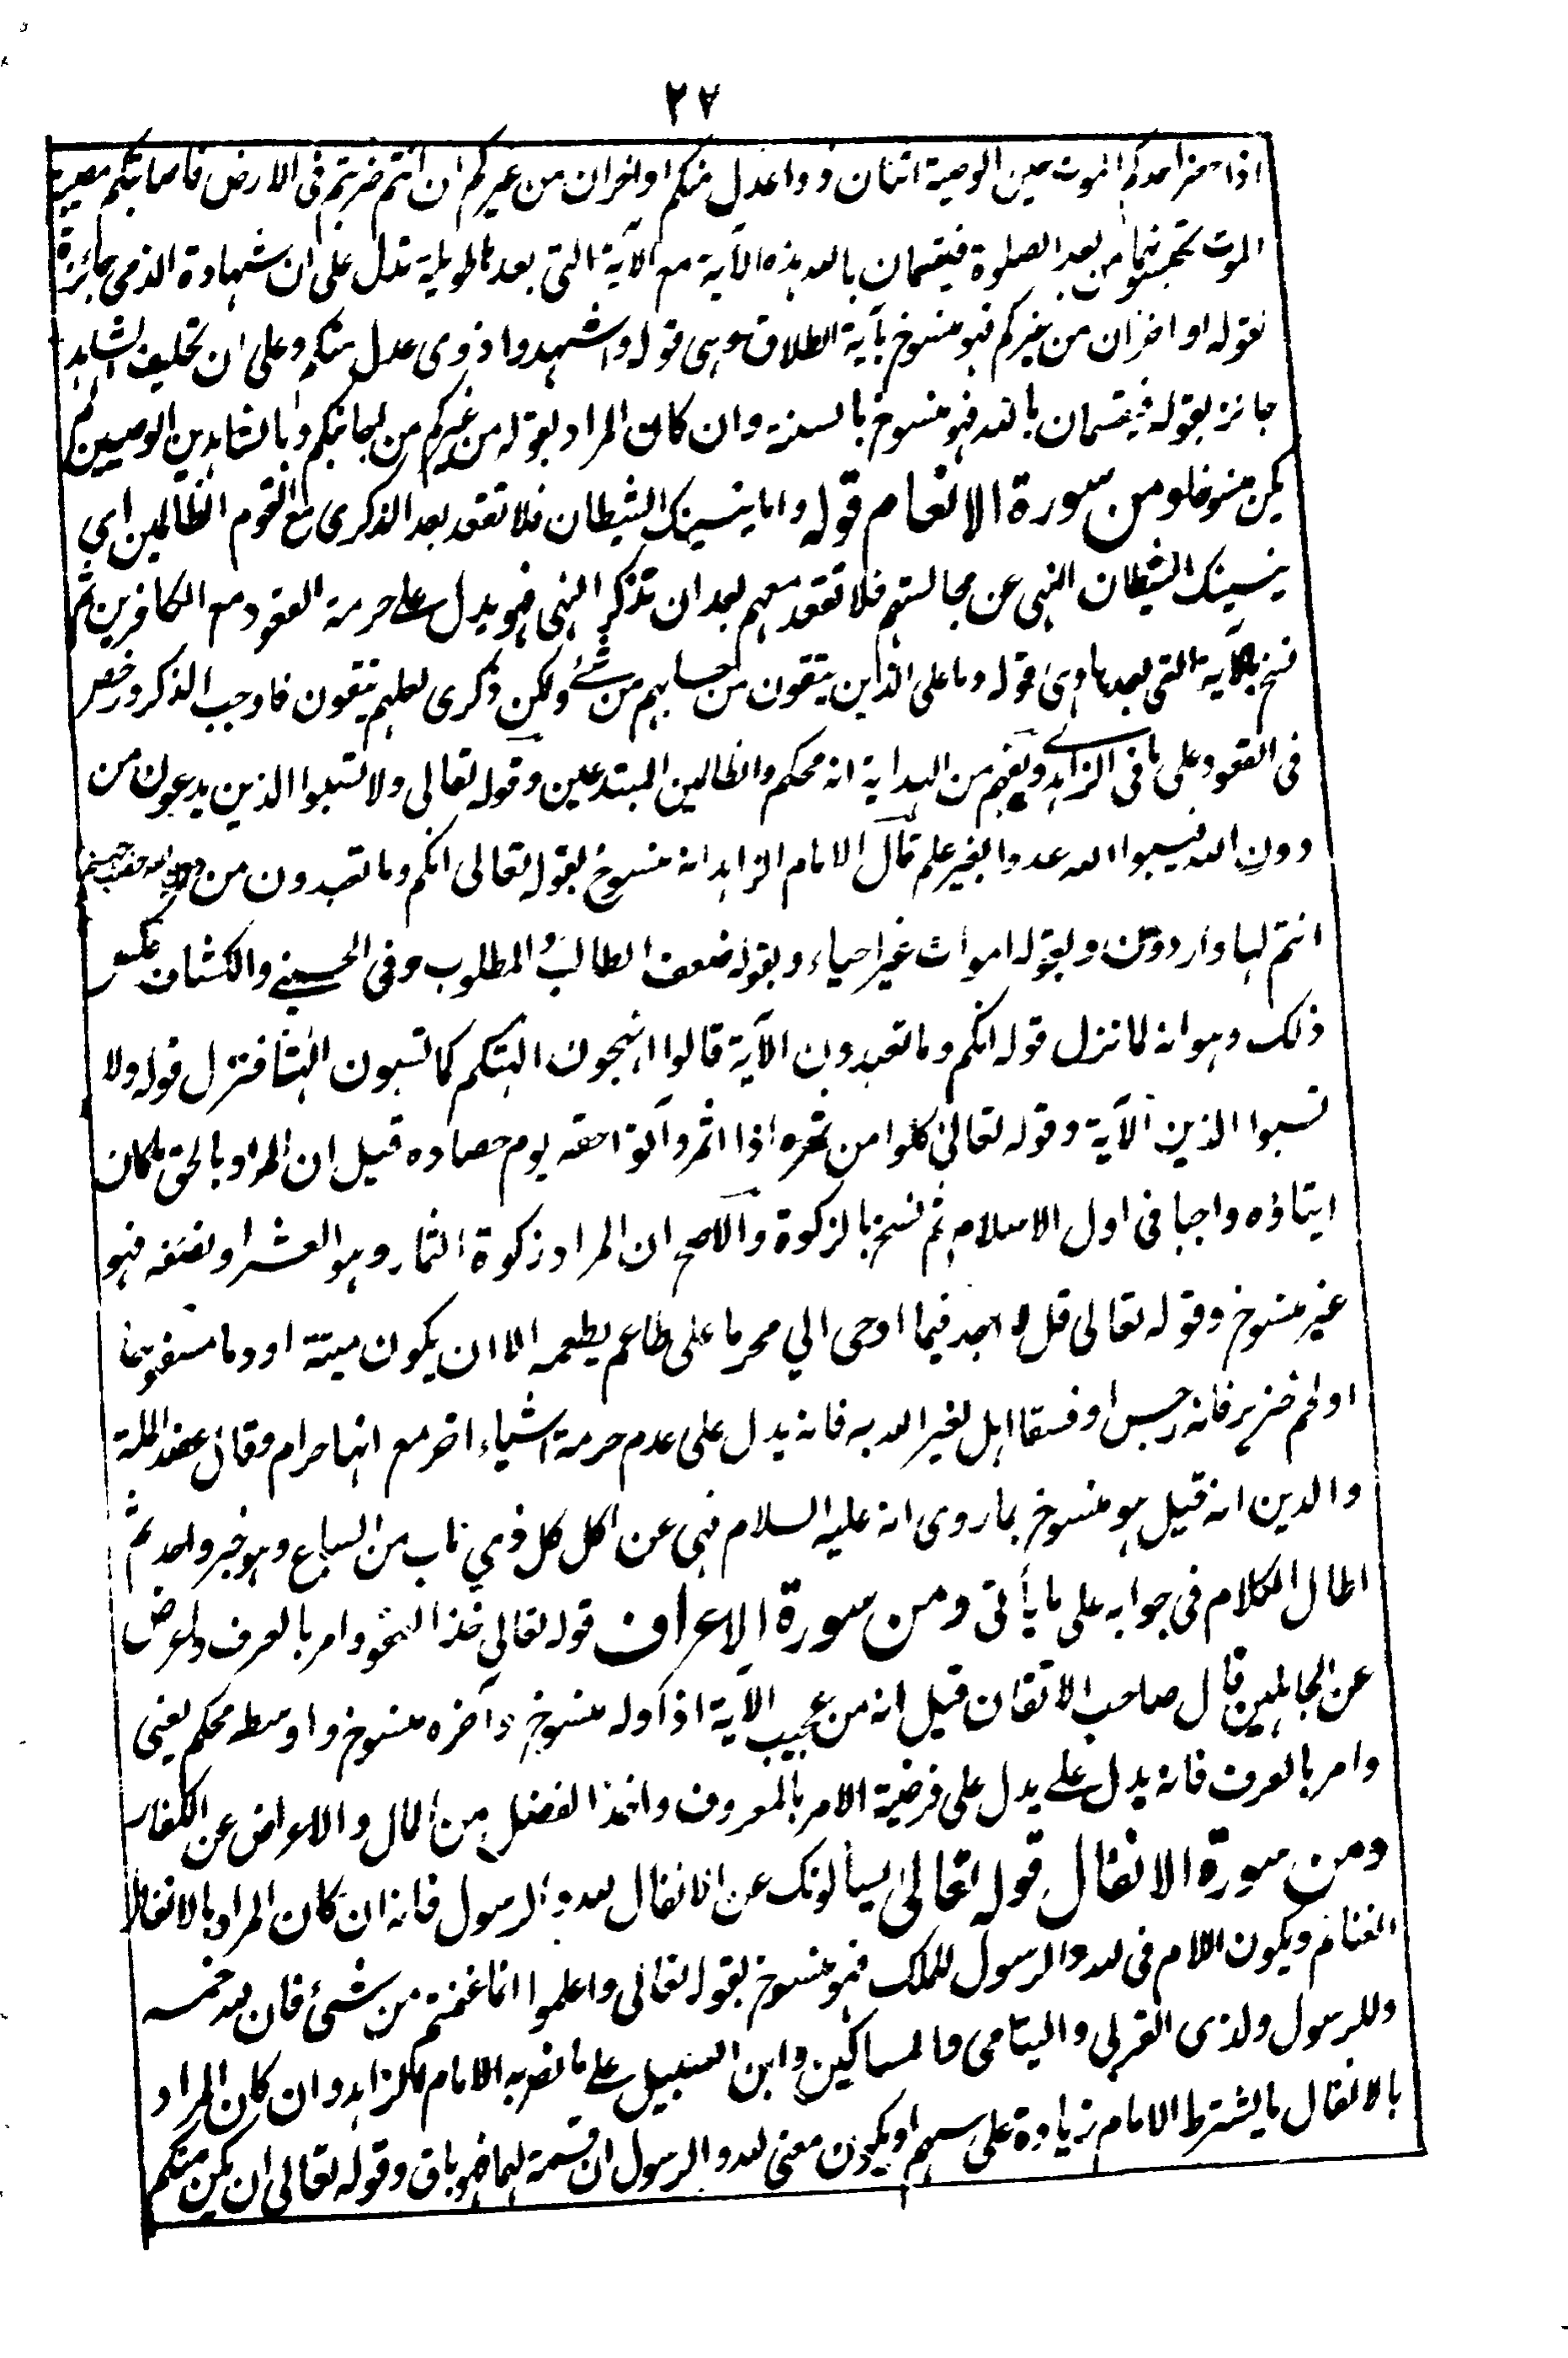 ٢٧
اذا حضر احدكم الموت حين الوصية اثنان ذوا عدل منكم او اخران من غيركم ان انتم ضربتم فى الارض فاصابتكم مصيبة
الموت تحبسونهما من بعد الصلوة فيقسمان بالله هذه الآية مع الآية التى بعدها طويلة تدل على ان شهادة الذمى جائزة
بقوله او اخران من غيركم فهو منسوخ بآية الطلاق وهى قوله واشهدوا ذوى عدل منكم وعلى ان تحليف الشاهد
جائز بقوله فيقسمان بالله فهو منسوخ بالسنة وان كان المراد بقوله من غيركم من اجانبكم وبالشاهدين الوصيين لم
يكن منسوخا ومن سورة الانعام قوله واما ينسينك الشيطان فلا تقعد بعد الذكرى مع القوم الظالمين اى
ينسينك الشيطان النهى عن مجالستهم فلا تقعد معهم بعد ان تذكر النهى فهو يدل على حرمة القعود مع الكافرين ثم
نسخ بالآية التى بعدها وهى قوله وما على الذين يتقون من حسابهم من شئ ولكن ذكرى لعلهم يتقون فاوجب الذكر ورخص
فى القعود على ما فى الزاهدى ويفهم من الهداية انه محكم والظالمين المبتدعين وقوله تعالى ولا تسبوا الذين يدعون من
دون الله فيسبوا الله عدوا بغير علم قال الامام الزاهد انه منسوخ بقوله تعالى انكم وما تعبدون من دون الله حصب جهنم
انتم لها واردون وبقوله اموات غير احياء وبقوله ضعف الطالب والمطلوب وفى الحسينى والكشاف عكس
ذلك وهو انه لما نزل قوله انكم وما تعبدون الآية قالوا انهجون الهتكم كما تسبون الهتنا فنزل قوله ولا
تسبوا الذين الآية وقوله تعالى كلوا من ثمره اذا اثمر وآتوا حقه يوم حصاده قيل ان المراد بالحق ما كان
ايتاؤه واجبا فى اول الاسلام ثم نسخ بالزكوة والاصح ان المراد زكوة الثمار وهو العشر او نصفه فهو
غير منسوخ وقوله تعالى قل لا اجد فيما اوحى الي محرما على طاعم يطعمه الا ان يكون ميتة او دما مسفوحا
او لحم خنزير فانه رجس او فسقا اهل لغير الله به فانه يدل على عدم حرمة اشياء اخر مع انها حرام وقال عضد الملة
والدين انه قيل هو منسوخ بما روى انه عليه السلام نهى عن اكل كل ذي ناب من السباع وهو خبر واحد ثم
اطال الكلام فى جوابه على ما يأتى ومن سورة الاعراف قوله تعالى خذ العفو وامر بالعرف واعرض
عن الجاهلين قال صاحب الاتقان قيل انه من عجيب الآية اذ اوله منسوخ وآخره منسوخ واوسطه محكم يعنى
وامر بالعرف فانه يدل على يدل على فرضية الامر بالمعروف واخذ الفضل من المال والاعراض عن الكفار
ومن سورة الانفال قوله تعالى يسألونك عن الانفال لله والرسول فانه ان كان المراد بالانفال
الغنائم ويكون اللام فى لله والرسول للملك فهو منسوخ بقوله تعالى واعلموا انما غنمتم من شئ فان لله خمسه
وللرسول ولذى القربى واليتامى والمساكين وابن السبيل على ما نص به الامام الزاهد وان كان المراد
بالانفال ما يشترط الامام زيادة على سهم او يكون معنى لله والرسول ان قسمة لهما فهو باق وقوله تعالى ان يكن منكم